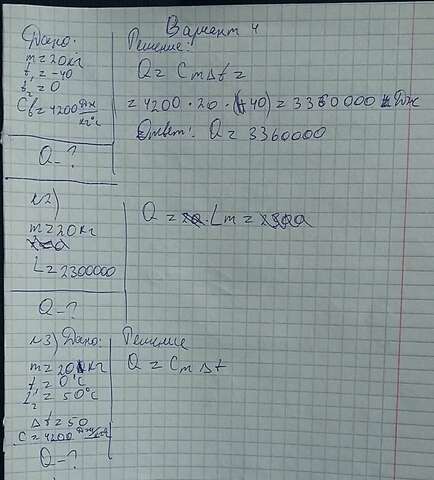 Вариант 4
Дано:
m = 20 кг
t₁ = -40
t₂ = 0
Cв = 4200 Дж/кг°C
Q - ?
Решение:
Q = Cm Δt =
= 4200 · 20 · ( 40) = 3360000 Дж
Ответ: Q = 3360000
N2)
m = 20 кг
L = 2300000
Q - ?
Q = Lm =
N3) Дано:
m = 20 кг
t₁ = 0°C
t₂ = 50°C
Δt = 50
C = 4200
Q - ?
Решение
Q = Cm Δt